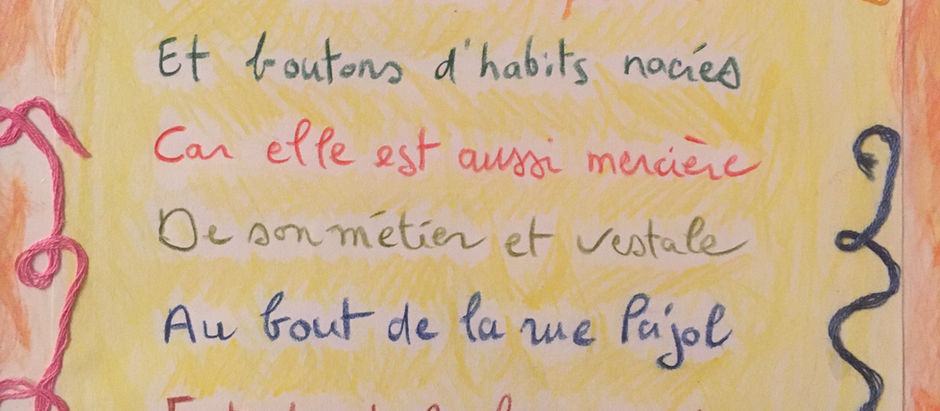 Et boutons d'habits nacrés
Car elle est aussi mercière
De son métier et vestale
Au bout de la rue Pajol